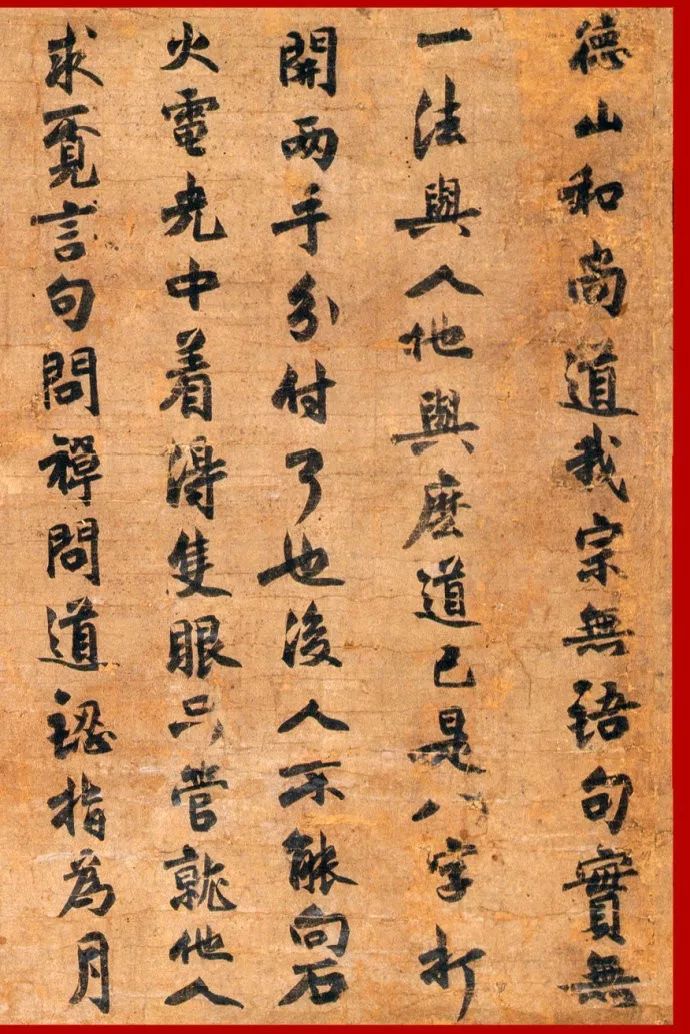 德山和尚道我宗無語句實無
一法與人他與麼道已是八字打
開兩手分付了也後人不能向石
火電光中着得隻眼只管就他人
求覓言句問禪問道認指為月